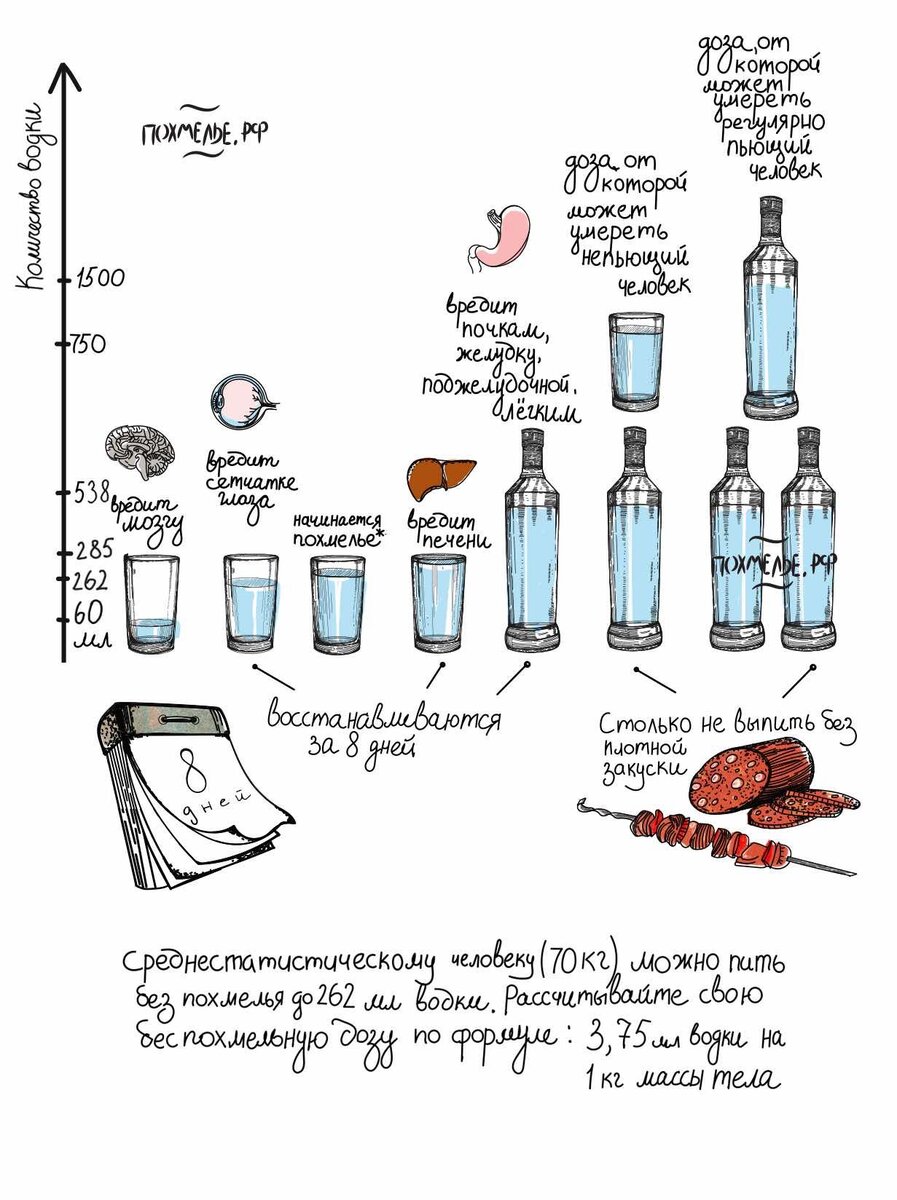 Количество водки
ПОХМЕЛЬЕ.РФ
1500
750
538
285
262
60
мл
вредит
мозгу
вредит
сетчатке
глаза
начинается
похмелье*
вредит
печени
вредит
почкам,
желудку,
поджелудочной,
лёгким
доза, от
которой
может
умереть
непьющий
человек
доза, от
которой
может
умереть
регулярно
пьющий
человек
ПОХМЕЛЬЕ.РФ
восстанавливаются
за 8 дней
Столько не выпить без
плотной
закуски
8
дней
Среднестатистическому человеку (70 кг) можно пить
без похмелья до 262 мл водки. Рассчитывайте свою
беспохмельную дозу по формуле: 3,75 мл водки на
1 кг массы тела